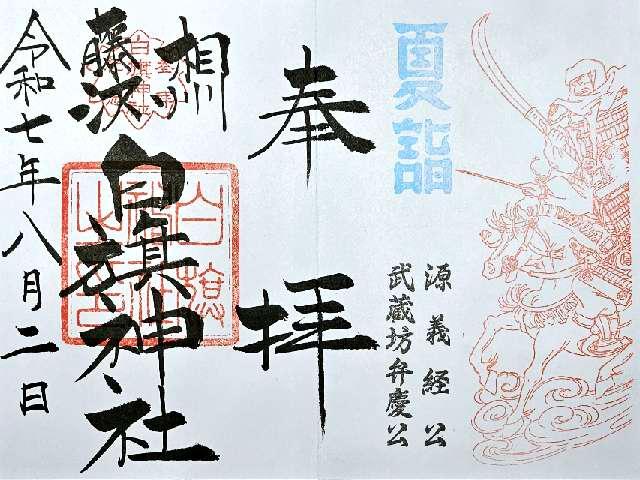 夏詣
源義経公
武蔵坊弁慶公
奉拝
相州
藤沢
白旗神社
令和七年八月二日